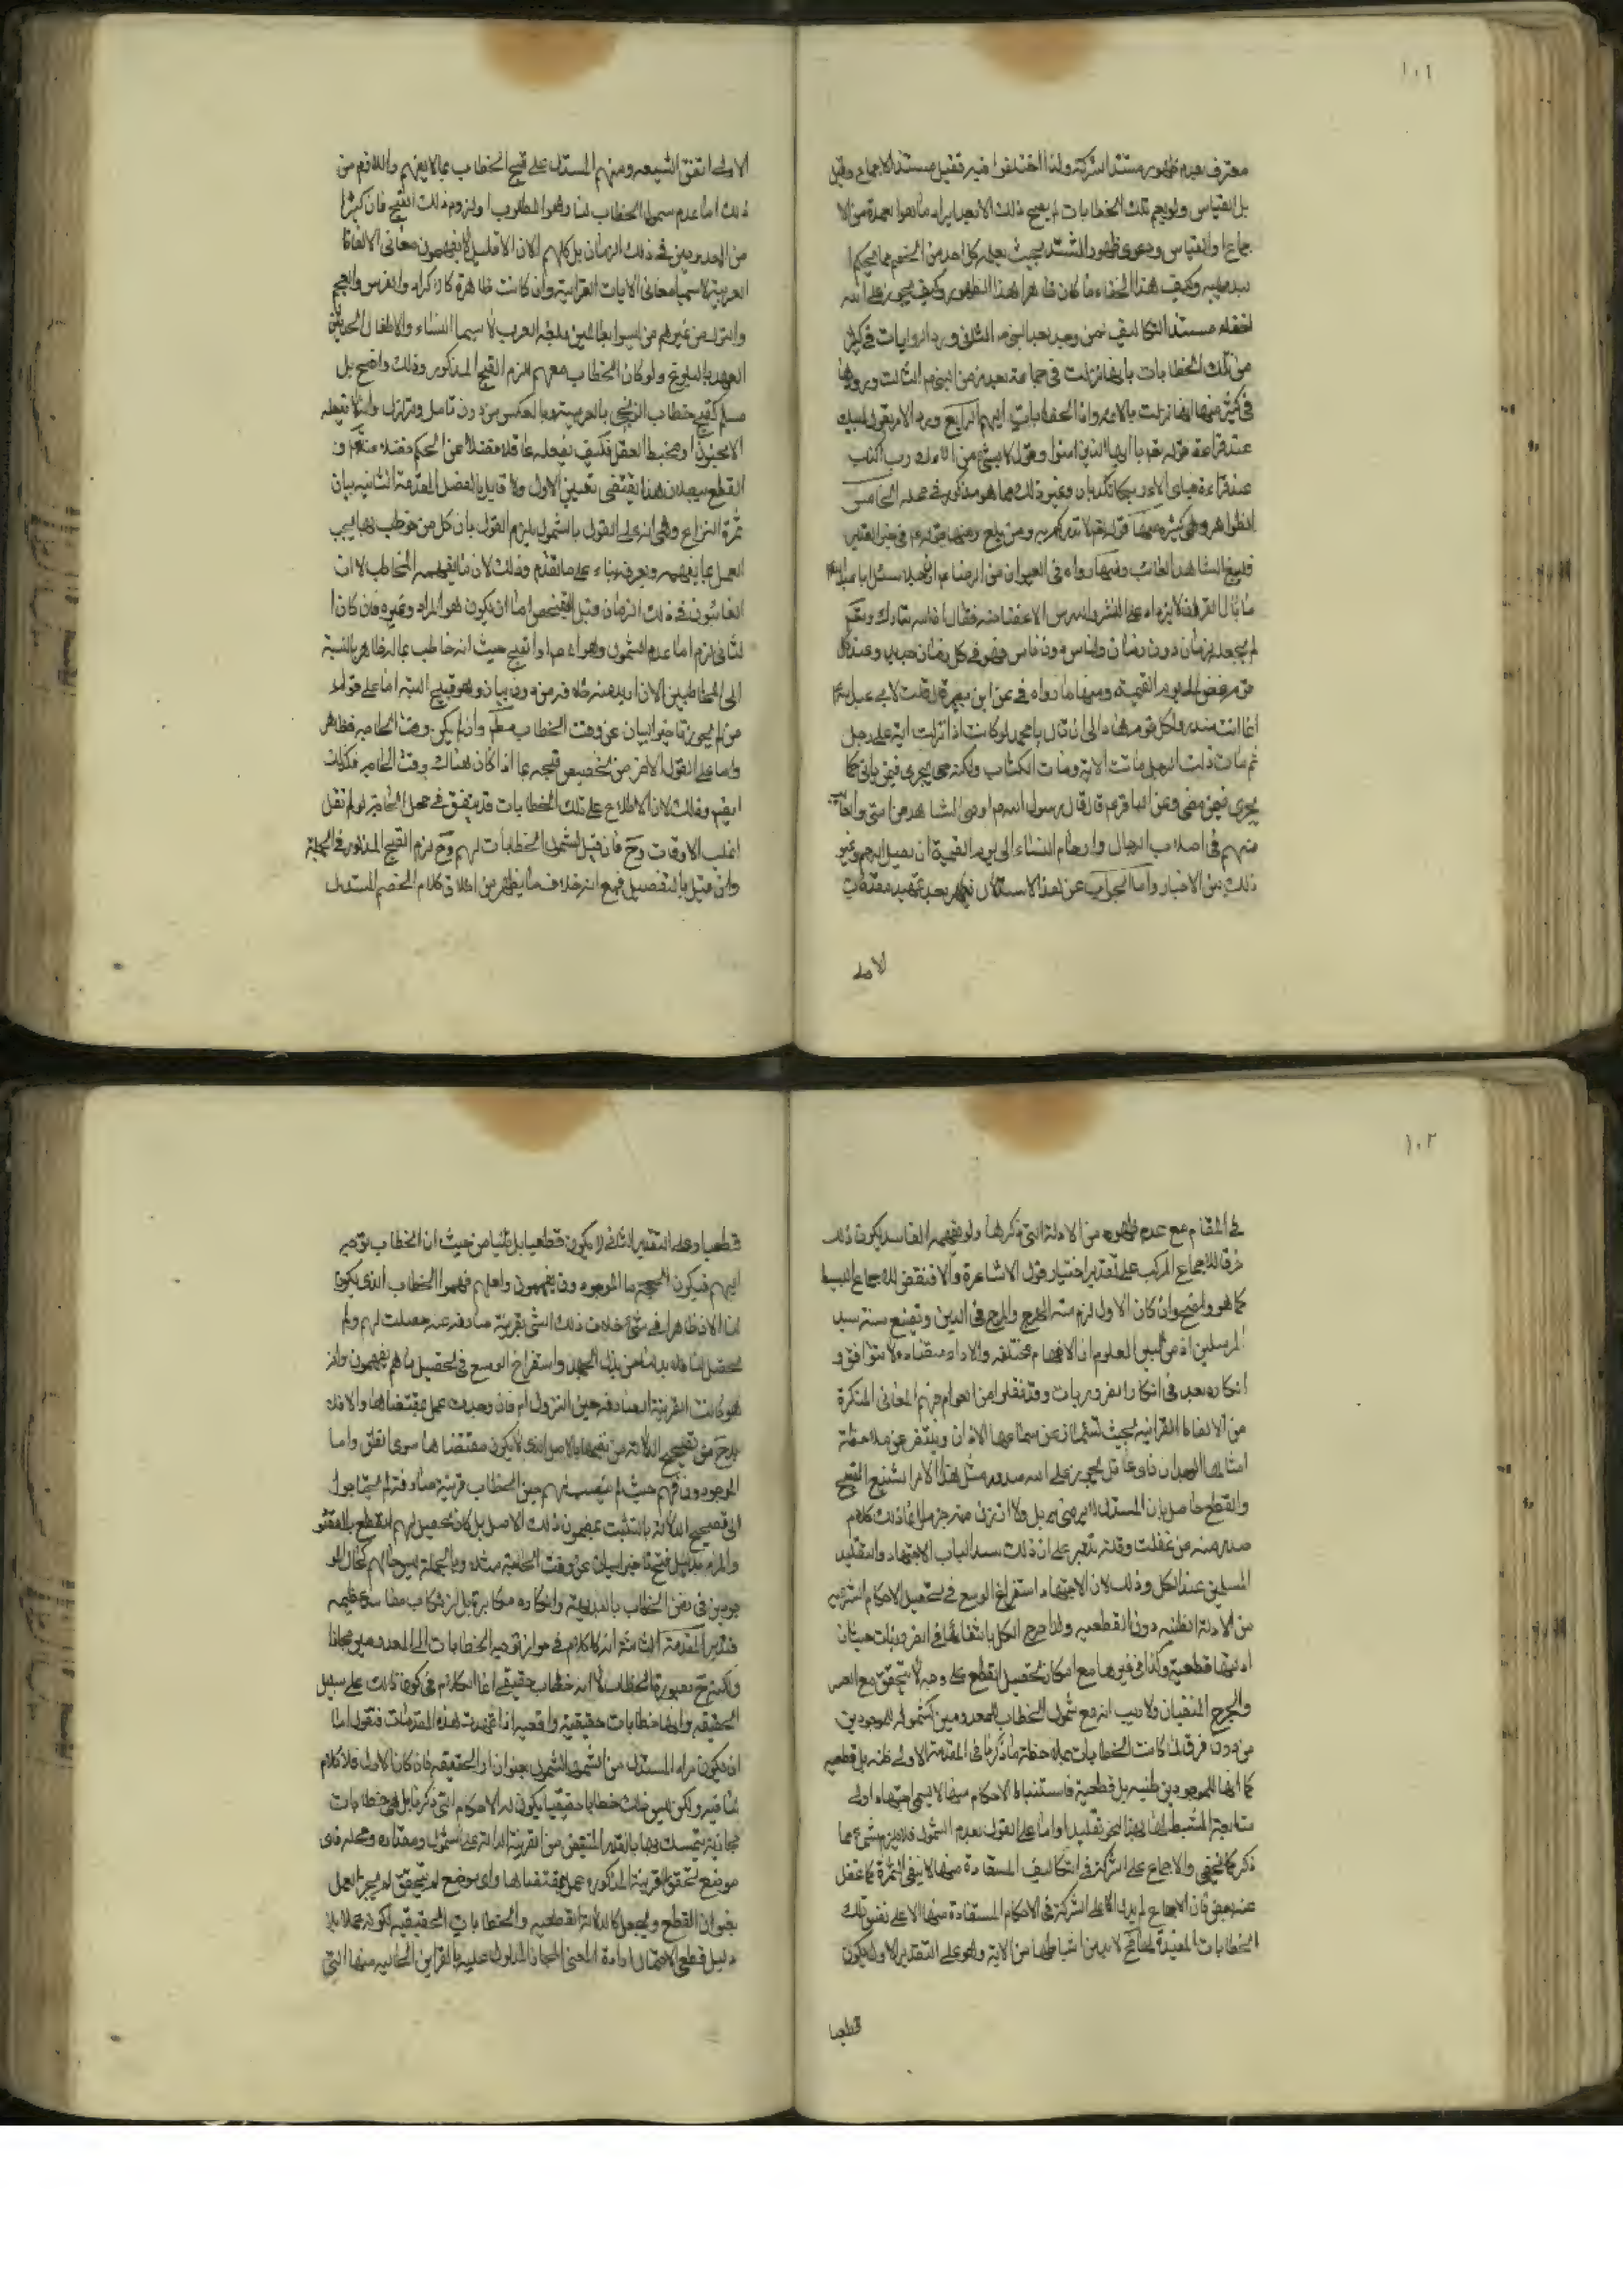 ١٠١
معترف بعدم ظهور مستند الشركة ولذا اختلفوا فيه فقيل مستند الاجماع وقيل
بل القياس ولو يعم تلك الخطابات لم يصح ذلك الا بعد ايراد ما هو العمدة من الا
جماع والقياس ودعوى ظهور المستند بحيث يعلمه كل احد من الخصم مما يحكم
وكيف هذا الخفاء ما كان ظاهرا هذا الظهور وكيف يجوز على الله
اخفاء مستند التكاليف عمن وجد بعد النبي الثاني ورود الروايات في كثير
من تلك الخطابات بانها نزلت في جماعة بعد زمن النبي الثالث ورودها
في كثير منها انها نزلت بالامر وان الخطابات اليهم الرابع ورود الامر بقول لبيك
عند قراءة قوله تعالى يا ايها الذين امنوا وقول لا بشيء من الاءك رب اكذب
عند قراءة فباي الاء ربكما تكذبان وغير ذلك مما هو مذكور في محله الخامس
الظواهر وهي كثيرة منها قوله لانذركم به ومن بلغ ومنها في خبر الغدير
فليبلغ الشاهد الغائب ومنها رواه في العيون عن الرضا عن ابيه سئل ابا عبد الله
ما بال القران لا يزداد على النشر والدرس الا غضاضة فقال لان الله تبارك وتعالى
لم يجعله لزمان دون زمان ولناس دون ناس فهو في كل زمان جديد وعند كل
قوم غض الى يوم القيمة ومنها ما رواه في عن ابن بصير قلت لابي عبد الله
انما انت منذر ولكل قوم هاد الى ان قال يا محمد لو كانت اذا نزلت اية على رجل
ثم مات ذلك الرجل ماتت الاية ومات الكتاب ولكنه حي يجري فيمن بقي كما
يجري فيمن مضى وعن الباقر قال قال رسول الله اوصي الشاهد من امتي والغائب
منهم في اصلاب الرجال وارحام النساء الى يوم القيمة ان يصل الرحم وغير
ذلك من الاخبار واما الجواب عن هذا الاستدلال فيظهر بعد تمهيد مقدمات
الاولى
الاولى اتفق الشيعة ومنهم المستدل على قبح الخطاب بما لا يفهم واللازم من
ذلك اما عدم شمول الخطاب لنا وهو المطلوب او لزوم ذلك القبح فان كثيرا
من المعدومين في ذلك الزمان بل كلهم الان الا قليل لا يفهمون معاني الالفاظ
العربية لا سيما معاني الايات القرانية وان كانت ظاهرة كالاكراد والفرس والعجم
والترك من غيرهم من ليسوا عالمين بلغة العرب لا سيما النساء والاطفال الحديثي
العهد بالبلوغ ولو كان الخطاب معهم لزم القبح المذكور وذلك واضح بل
مسلم كقبح خطاب الزنجي بالعربية وبالعكس من دون تامل وتزلزل ولا يفعله
الا مجنون او مخبط العقل فكيف يفعله عاقل فضلا عن الحكم فضلا عنه تعالى و
القطع ببطلان هذا يقتضي تعيين الاول ولا قايل بالفصل المقدمة الثانية بيان
ثمرة النزاع وهي انه على القول بالشمول يلزم القول بان كل من خوطب بها يجب
العمل بما يفهمه ويعرف بناء على ما تقدم وذلك لان ما يفهمه المخاطب الان
الغائبون في ذلك الزمان قبل الفحص اما ان يكون هو المراد او غيره فان كان ا
لثاني لزم اما عدم الشمول وهو المراد او القبح حيث انه خاطب بما له ظاهر بالنسبة
الى المخاطبين الان اريد منه خلافه من دون بيان وهو قبيح البتة اما على قول
من لم يجوز تاخير البيان عن وقت الخطاب مط وان لم يكن وقت الحاجة فظاهر
واما على القول الاخر من تخصيص قبحه بما اذا كان هناك وقت الحاجة فكذلك
ايضا وذلك لان الاطلاع على تلك الخطابات قد يتفق في محل الحاجة لو لم نقل
اغلب الاوقات وح فان قيل بشمول الخطابات لهم وح لزم القبح المذكور في الجملة
وان قيل بالتفصيل فمع انه خلاف ما يظهر من اطلاق كلام الخصم المستدل
١٠٢
في المقام مع عدم ظهوره من الادلة التي ذكرها ولو بفهمه الفاسد يكون ذلك
خرقا للاجماع المركب على تقدير اختيار قول الاشاعرة والا فنقض للاجماع البسيط
كما هو واضح وان كان الاول لزم منه الهرج والمرج في الدين وتضيع سنة سيد
المرسلين اذ من البين المعلوم ان الافهام مختلفة والاراء متضادة لا تتوافق و
انكاره يعد في انكار الضروريات وقد نقلوا من العوام فهم المعاني المنكرة
من الالفاظ القرانية بحيث تشمئز عن سماعها الاذان ويتنفر عن ملاحظة
امثالها الوجدان فاي عاقل يجوز على الله صدور مثل هذا الامر الشنيع القبيح
والقطع حاصل بان المستدل لا يرضى به بل ولا
صدر منه عن غفلة وقلة تدبر على ان ذلك سد لباب الاجتهاد والتقليد
المسلمين عند الكل وذلك لان الاجتهاد استفراغ الوسع في تحصيل الاحكام الشرعية
من الادلة الظنية دون القطعية ولذا صرح الكل بانتفائها في الضروريات حيث ان
ادلتها قطعية وكذا في غيرها مع امكان تحصيل القطع على وجه لا يتحقق مع العسر
والحرج المنفيان ولا ريب انه مع شمول الخطاب للمعدومين كشموله للموجودين
من دون فرق لما كانت الخطابات بملاحظة ما ذكرنا في المقدمة الاولى ظنية بل قطعية
كما انها للموجودين ظنية بل قطعية فاستنباط الاحكام منها لا يسمى اجتهادا ولا
متابعة المستنبط لها بهذا النحو تقليدا واما على القول بعدم الشمول فلا يلزم شيء مما
ذكر كما لا يخفى والاجماع على الشركة في التكاليف المستفادة منها لا ينفي الثمرة كما غفل
عنه بعض فان الاجماع لم يدل الا على الشركة في الاحكام المستفادة منها لا على نفس تلك
الخطابات المفيدة لها فح لا بد من استنباطها من الاية وهو على التقدير الاول يكون
قطعيا
قطعيا وعلى التقدير الثاني لا يكون قطعيا بل ظنيا من حيث ان الخطاب توجه
اليهم فيكون الحجة ما الموجودون يفهمون ولعلهم فهموا الخطاب الذي يكون
لنا الان ظاهرا في شيء خلاف ذلك الشيء بقرينة صارفة عنه حصلت لهم ولم
تحصل لنا فلا بد لنا من بذل الجهد واستفراغ الوسع في تحصيل ما هم يفهمون وانه
هو كانت القرينة الصارفة حين النزول ام لا فان وجدت عمل بمقتضاها والا فلا
بد ح من تصحيح الدلالة من نفيها بالاصل الذي لا يكون مقتضاها سوى الظن واما
الموجودون فهم حيث لم ينصب لهم حين الخطاب قرينة صارفة لم يحتاجوا
الى تصحيح الدلالة بالتشبث بمضمون ذلك الاصل بل كان تحصيل لهم القطع بالمقصود
والمراد بدليل قبح تاخير البيان عن وقت الحاجة وبالجملة ليس حالهم كحال المو
جودين في نفس الخطاب بالبديهة وانكاره مكابرة بل ارتكاب مفاسد عظيمة
فتدبر المقدمة الثالثة انه لا كلام في جواز توجيه الخطابات الى المعدومين مجازا
ولكنه ح بصورة الخطاب لا انه خطاب حقيقي انما الكلام في كونها كانت على سبيل
الحقيقة وانها خطابات حقيقية واقعية اذا تمهدت هذه المقدمات فنقول اما
ان يكون مراد المستدل من الشمول الشمول بعنوان او الحقيقة فان كان الاول فلا كلام
لنا فيه ولكن ليس ذلك خطابا حقيقيا يكون له الاحكام التي ذكرنا بل هي خطابات
مجازية يتمسك بها بالقدر المتيقن من القرينة الدالة على الشمول ومفاده ومحله فاي
موضع تحقق القرينة المذكورة عمل بمقتضاها واي موضع لم يتحقق لم يجز العمل
بعنوان القطع ويجعل كالدلالة القطعية والخطابات الحقيقية لكونه عملا بلا
دليل قطعي لاحتمال ارادة المعنى المجاز المدلول عليه بالقراين الحالية منها التي